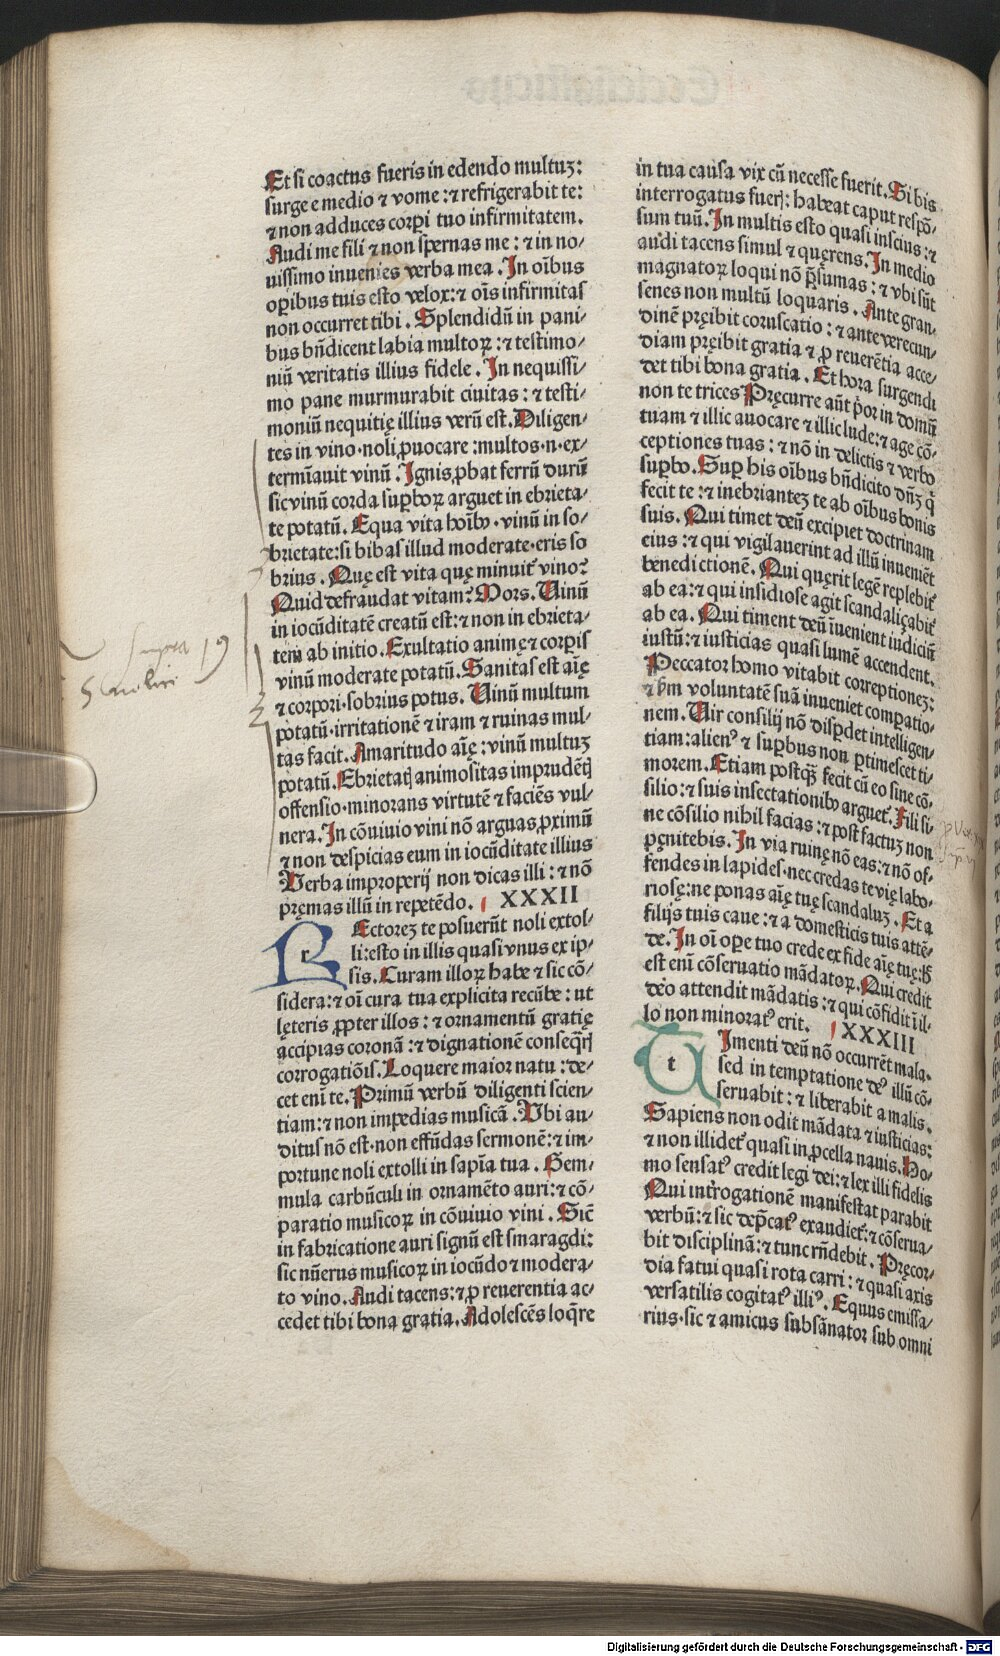 Et si coactus fueris in edendo multuꝫ:
surge e medio ⁊ vome:⁊ refrigerabit te:
⁊ non adduces corꝑi tuo infirmitatem.
Audi me fili ⁊ non sꝑnas me:⁊ in no-
uissimo inuenies verba mea. In oībus
oꝑibus tuis esto velox:⁊ oīs infirmitas
non occurret tibi. Splendidū in pani-
bus bn̄dicent labia multoꝝ:⁊ testimo-
niū veritatis illius fidele. In nequissi-
mo pane murmurabit ciuitas:⁊ testi-
moniū nequitię illius verū est. Diligen-
tes in vino·noli ꝓuocare:multos·n·ex-
termīauit vinū. Ignis ꝓbat ferrū durū
sic vinū corda suꝑboꝝ arguet in ebrieta-
te potatū. Equa vita hoībꝰ·vinū in so-
brietate:si bibas illud moderate·eris so
brius. Quę est vita quę minuit᷑ vino?
Quid defraudat vitam? Mors. Uinū
in iocūditatē creatū est:⁊ non in ebrieta-
tem ab initio. Exultatio animę ⁊ corꝑis
vinū moderate potatū. Sanitas est aīę
⁊ corpori·sobrius potus. Uinū multum
potatū·irritationē ⁊ iram ⁊ ruinas mul-
tas facit. Amaritudo aīę:vinū multuꝫ
potatū. Ebrietatꝭ animositas imprudētꝭ
offensio·minorans virtutē ⁊ faciēs vul-
nera. In cōuiuio vini nō arguas ꝓximū
⁊ non despicias eum in iocūditate illius
Verba improperij non dicas illi:⁊ nō
pręmas illū in repetēdo. XXXII
REctoreꝫ te posuerūt noli extol-
li:esto in illis quasi vnus ex ip-
sis. Curam illoꝝ habe ⁊ sic cō-
sidera:⁊ oī cura tua explicita recūbe:ut
lęteris ꝓpter illos:⁊ ornamentū gratię
accipias coronā:⁊ dignationē conseq̄rꝭ
corrogatiōis. Loquere maior natu:de-
cet eni te. Primū verbū diligenti scien-
tiam:⁊ non impedias musicā. Ubi au-
ditus nō est·non effūdas sermonē:⁊ im-
portune noli extolli in sapīa tua. Gem-
mula carbūculi in ornamēto auri:⁊ cō-
paratio musicoꝝ in cōuiuio vini. Sic̄
in fabricatione auri signū est smaragdi:
sic nūerus musicoꝝ in iocūdo ⁊ modera-
to vino. Audi tacens:⁊ ꝓ reuerentia ac-
cedet tibi bona gratia. Adolescēs loq̄re
in tua causa vix cū necesse fuerit. Si bis
interrogatus fuerꝭ:habeat caput respō-
sum tuū. In multis esto quasi inscius:⁊
audi tacens simul ⁊ quęrens. In medio
magnatoꝝ loqui nō p̄sumas:⁊ vbi sūt
senes non multū loquaris. Ante gran-
dinē pręibit coruscatio:⁊ ante verecun-
diam pręibit gratia ⁊ ꝓ reuerētia acce-
det tibi bona gratia. Et hora surgendi
non te trices Pręcurre aūt p̓or in domū
tuam ⁊ illic auocare ⁊ illic lude:⁊ age cō-
ceptiones tuas:⁊ nō in delictis ⁊ verbo
suꝑbo. Suꝑ his oībus bn̄dicito dn̄ꝫ q̓
fecit te:⁊ inebrianteꝫ te ab oībus bonis
suis. Qui timet deū excipiet doctrinam
eius:⁊ qui vigilauerint ad illū inueniēt
benedictionē. Qui quęrit legē replebit᷑
ab ea:⁊ qui insidiose agit scandaliçabit᷑
ab ea. Qui timent deū īuenient iudiciū
iustū:⁊ iusticias quasi lumē accendent.
Peccator homo vitabit correptioneꝫ:
⁊ ẜm voluntatē suā inueniet comꝑatio-
nem. Uir consilij nō disꝑdet intelligen-
tiam:alienꝰ ⁊ suꝑbus non ꝑtimescet ti-
morem. Etiam postq̄ꝫ fecit cū eo sine cō-
silio:⁊ suis insectationibꝰ arguet᷑. Fili si-
ne cōsilio nihil facias:⁊ post factuꝫ non
pęnitebis. In via ruinę nō eas:⁊ nō of-
fendes in lapides·nec credas te vię labo-
riosę:ne ponas aīę tuę scandaluꝫ. Et a
filijs tuis caue:⁊ a domesticis tuis attē-
de. In oī oꝑe tuo crede ex fide aīę tuę:h̄
est enī cōseruatio mādatoꝝ. Qui credit
deo attendit mādatis:⁊ qui cōfidit ī il-
lo non minorat᷑ erit. XXXIII
TImenti deū nō occurrēt mala·
sed in temptatione deꝰ illū cō-
seruabit:⁊ liberabit a malis.
Sapiens non odit mādata ⁊ iusticias:
⁊ non illidet᷑ quasi in ꝓcella nauis. Ho-
mo sensatꝰ credit legi dei:⁊ lex illi fidelis
Qui int̓rogationē manifestat parabit
verbū:⁊ sic dep̄catꝰ exaudiet᷑:⁊ cōserua-
bit disciplinā:⁊ tunc rn̄debit. Pręcor-
dia fatui quasi rota carri:⁊ quasi axis
versatilis cogitatꝰ illiꝰ. Equus emissa-
rius·sic ⁊ amicus subsānator sub omni
Digitalisierung gefördert durch die Deutsche Forschungsgemeinschaft - DFG